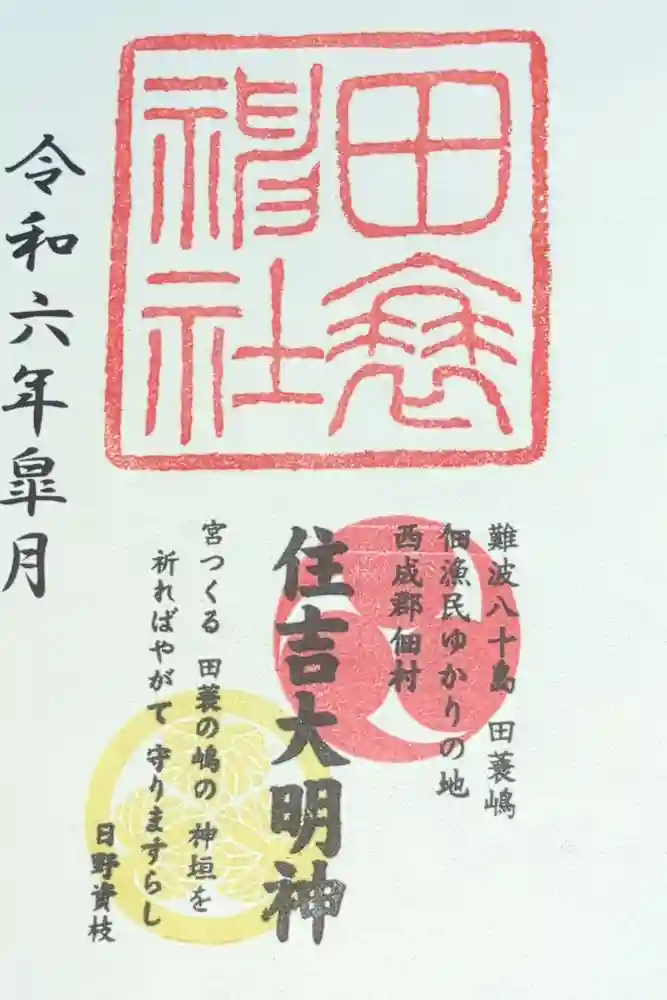 田蓑
神社
難波八十島 田蓑嶋
佃漁民ゆかりの地
西成郡佃村
住吉大明神
宮つくる 田蓑の嶋の 神垣を
祈ればやがて 守りますらし
日野資枝
令和六年皐月